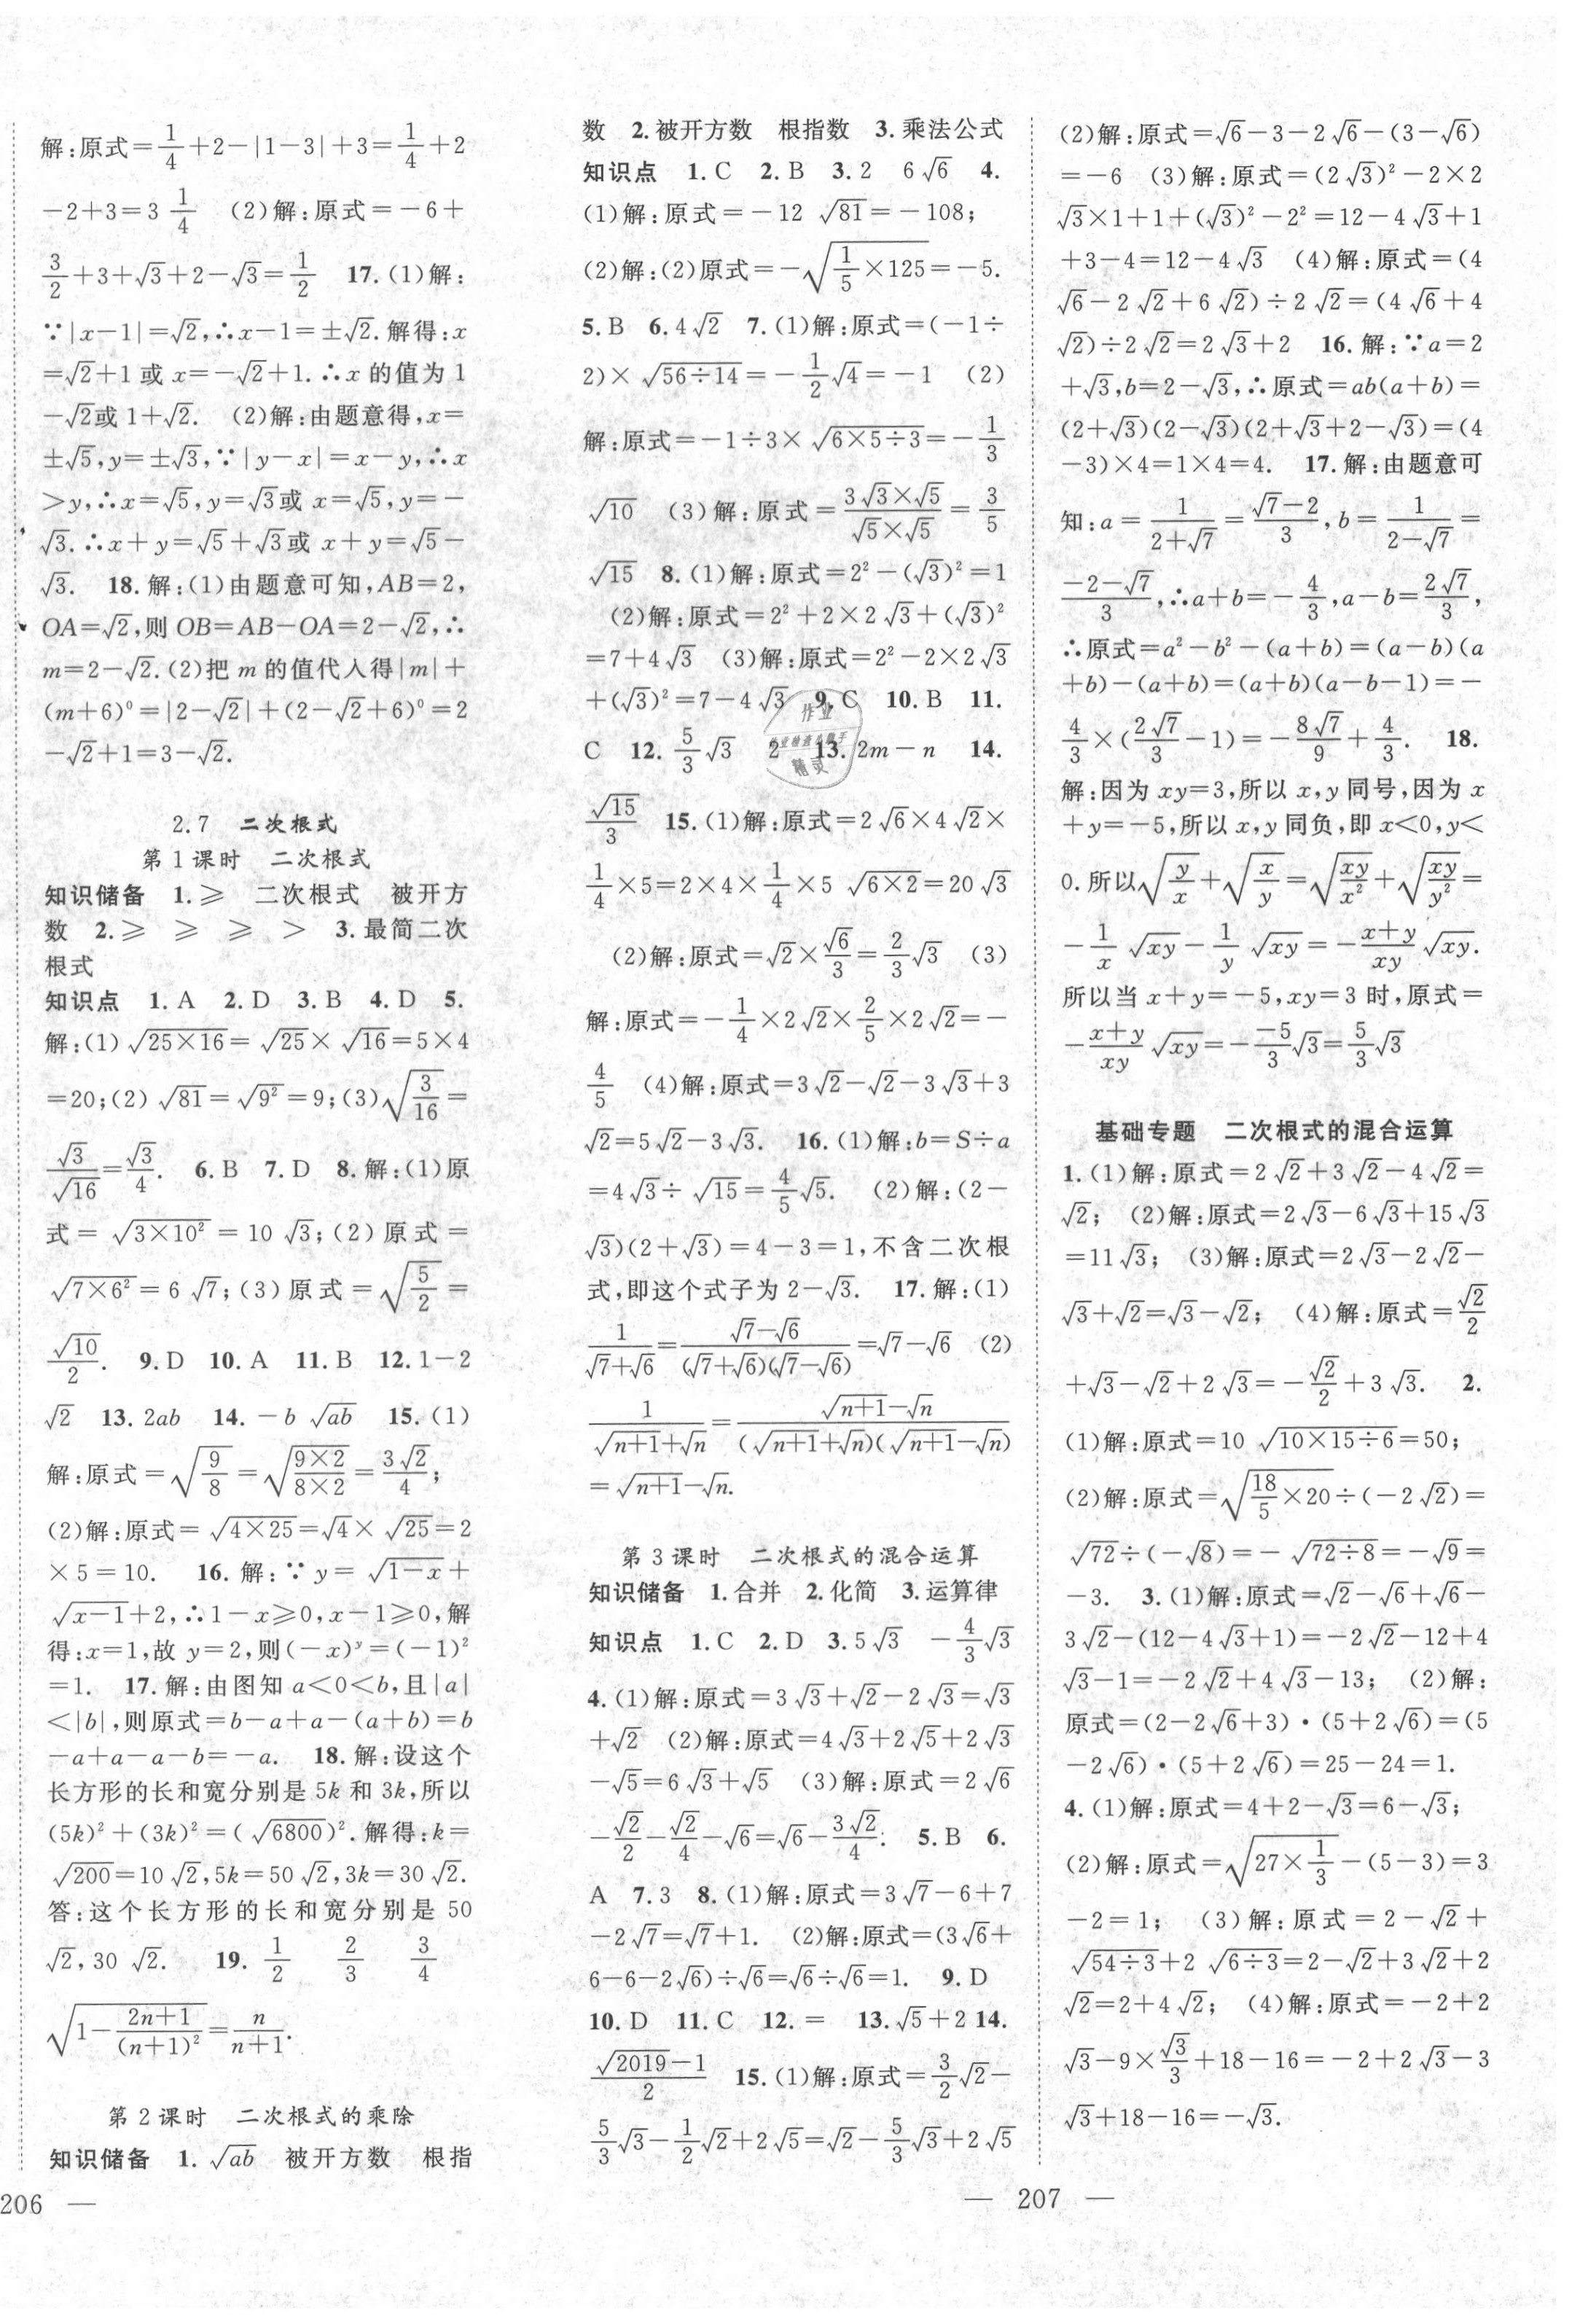 解:原式=1/4+2-|1-3|+3=1/4+2
-2+3=3 1/4 (2)解:原式=-6+
3/2+3+√3+2-√3=1/2 17.(1)解:
∵|x-1|=√2,∴x-1=±√2.解得:x
=√2+1或x=-√2+1.∴x的值为1
-√2或1+√2. (2)解:由题意得,x=
±√5,y=±√3,∵|y-x|=x-y,∴x
>y,∴x=√5,y=√3或x=√5,y=-
√3.∴x+y=√5+√3或x+y=√5-
√3. 18.解:(1)由题意可知,AB=2,
OA=√2,则OB=AB-OA=2-√2,∴
m=2-√2.(2)把m的值代入得|m|+
(m+6)⁰=|2-√2|+(2-√2+6)⁰=2
-√2+1=3-√2.
2.7 二次根式
第1课时 二次根式
知识储备 1.≥ 二次根式 被开方
数 2.≥ ≥ ≥ > 3.最简二次
根式
知识点 1.A 2.D 3.B 4.D 5.
解:(1)√(25×16)=√25×√16=5×4
=20;(2)√81=√(9²)=9;(3)√(3/16)=
√3/√16=√3/4. 6.B 7.D 8.解:(1)原
式=√(3×10²)=10√3;(2)原式=
√(7×6²)=6√7;(3)原式=√(5/2)=
√10/2. 9.D 10.A 11.B 12.1-2
√2 13.2ab 14.-b√(ab) 15.(1)
解:原式=√(9/8)=√((9×2)/(8×2))=3√2/4;
(2)解:原式=√(4×25)=√4×√25=2
×5=10. 16.解:∵y=√(1-x)+
√(x-1)+2,∴1-x≥0,x-1≥0,解
得:x=1,故y=2,则(-x)ʸ=(-1)²
=1. 17.解:由图知a<0<b,且|a|
<|b|,则原式=b-a+a-(a+b)=b
-a+a-a-b=-a. 18.解:设这个
长方形的长和宽分别是5k和3k,所以
(5k)²+(3k)²=(√6800)².解得:k=
√200=10√2,5k=50√2,3k=30√2.
答:这个长方形的长和宽分别是50
√2,30√2. 19.1/2 2/3 3/4
√(1-(2n+1)/(n+1)²)=n/(n+1).
第2课时 二次根式的乘除
知识储备 1.√(ab) 被开方数 根指
206 —
数 2.被开方数 根指数 3.乘法公式
知识点 1.C 2.B 3.2 6√6 4.
(1)解:原式=-12√81=-108;
(2)解:(2)原式=-√(1/5×125)=-5.
5.B 6.4√2 7.(1)解:原式=(-1÷
2)×√(56÷14)=-1/2√4=-1 (2)
解:原式=-1÷3×√(6×5÷3)=-1/3
√10 (3)解:原式=(3√3×√5)/(√5×√5)=3/5
√15 8.(1)解:原式=2²-(√3)²=1
(2)解:原式=2²+2×2√3+(√3)²
=7+4√3 (3)解:原式=2²-2×2√3
+(√3)²=7-4√3 9.C 10.B 11.
C 12.5/3√3 2 13.2m-n 14.
√15/3 15.(1)解:原式=2√6×4√2×
1/4×5=2×4×1/4×5√(6×2)=20√3
(2)解:原式=√2×√6/3=2/3√3 (3)
解:原式=-1/4×2√2×2/5×2√2=-
4/5 (4)解:原式=3√2-√2-3√3+3
√2=5√2-3√3. 16.(1)解:b=S÷a
=4√3÷√15=4/5√5. (2)解:(2-
√3)(2+√3)=4-3=1,不含二次根
式,即这个式子为2-√3. 17.解:(1)
1/(√7+√6)=(√7-√6)/((√7+√6)(√7-√6))=√7-√6 (2)
1/(√(n+1)+√n)=(√(n+1)-√n)/((√(n+1)+√n)(√(n+1)-√n))
=√(n+1)-√n.
第3课时 二次根式的混合运算
知识储备 1.合并 2.化简 3.运算律
知识点 1.C 2.D 3.5√3 -4/3√3
4.(1)解:原式=3√3+√2-2√3=√3
+√2 (2)解:原式=4√3+2√5+2√3
-√5=6√3+√5 (3)解:原式=2√6
-√2/2-√2/4-√6=√6-3√2/4. 5.B 6.
A 7.3 8.(1)解:原式=3√7-6+7
-2√7=√7+1. (2)解:原式=(3√6+
6-6-2√6)÷√6=√6÷√6=1. 9.D
10.D 11.C 12.= 13.√5+2 14.
(√2019-1)/2 15.(1)解:原式=3/2√2-
5/3√3-1/2√2+2√5=√2-5/3√3+2√5
(2)解:原式=√6-3-2√6-(3-√6)
=-6 (3)解:原式=(2√3)²-2×2
√3×1+1+(√3)²-2²=12-4√3+1
+3-4=12-4√3 (4)解:原式=(4
√6-2√2+6√2)÷2√2=(4√6+4
√2)÷2√2=2√3+2 16.解:∵a=2
+√3,b=2-√3,∴原式=ab(a+b)=
(2+√3)(2-√3)(2+√3+2-√3)=(4
-3)×4=1×4=4. 17.解:由题意可
知:a=1/(2+√7)=(√7-2)/3,b=1/(2-√7)=
(-2-√7)/3,∴a+b=-4/3,a-b=2√7/3,
∴原式=a²-b²-(a+b)=(a-b)(a
+b)-(a+b)=(a+b)(a-b-1)=-
4/3×(2√7/3-1)=-8√7/9+4/3. 18.
解:因为xy=3,所以x,y同号,因为x
+y=-5,所以x,y同负,即x<0,y<
0.所以√(y/x)+√(x/y)=√(xy/x²)+√(xy/y²)=
-1/x√(xy)-1/y√(xy)=-(x+y)/xy√(xy).
所以当x+y=-5,xy=3时,原式=
-(x+y)/xy√(xy)=-(-5)/3√3=5/3√3
基础专题 二次根式的混合运算
1.(1)解:原式=2√2+3√2-4√2=
√2; (2)解:原式=2√3-6√3+15√3
=11√3; (3)解:原式=2√3-2√2-
√3+√2=√3-√2; (4)解:原式=√2/2
+√3-√2+2√3=-√2/2+3√3. 2.
(1)解:原式=10√(10×15÷6)=50;
(2)解:原式=√(18/5×20)÷(-2√2)=
√72÷(-√8)=-√(72÷8)=-√9=
-3. 3.(1)解:原式=√2-√6+√6-
3√2-(12-4√3+1)=-2√2-12+4
√3-1=-2√2+4√3-13; (2)解:
原式=(2-2√6+3)·(5+2√6)=(5
-2√6)·(5+2√6)=25-24=1.
4.(1)解:原式=4+2-√3=6-√3;
(2)解:原式=√(27×1/3)-(5-3)=3
-2=1; (3)解:原式=2-√2+
√(54÷3)+2√(6÷3)=2-√2+3√2+2
√2=2+4√2; (4)解:原式=-2+2
√3-9×√3/3+18-16=-2+2√3-3
√3+18-16=-√3.
— 207 —